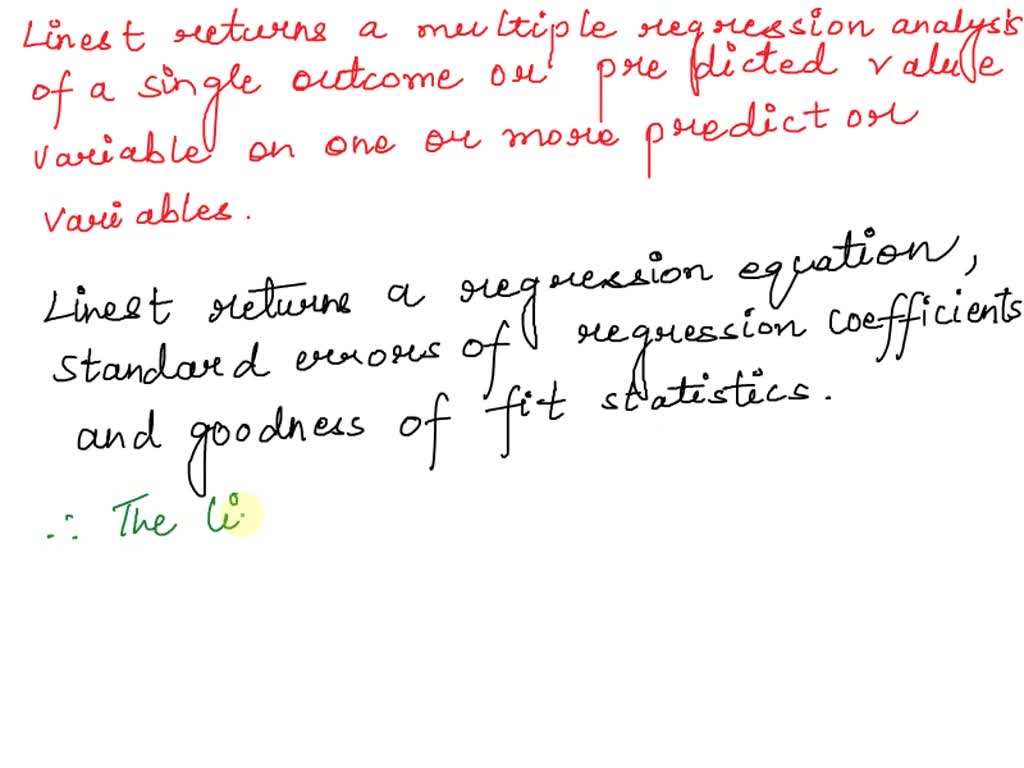 Linest returns a multiple regression analysis
of a single outcome or predicted value
variable on one or more predictor
variables.
Linest returns a regression equation,
standard errors of regression coefficients
and goodness of fit statistics.
∴ The Li